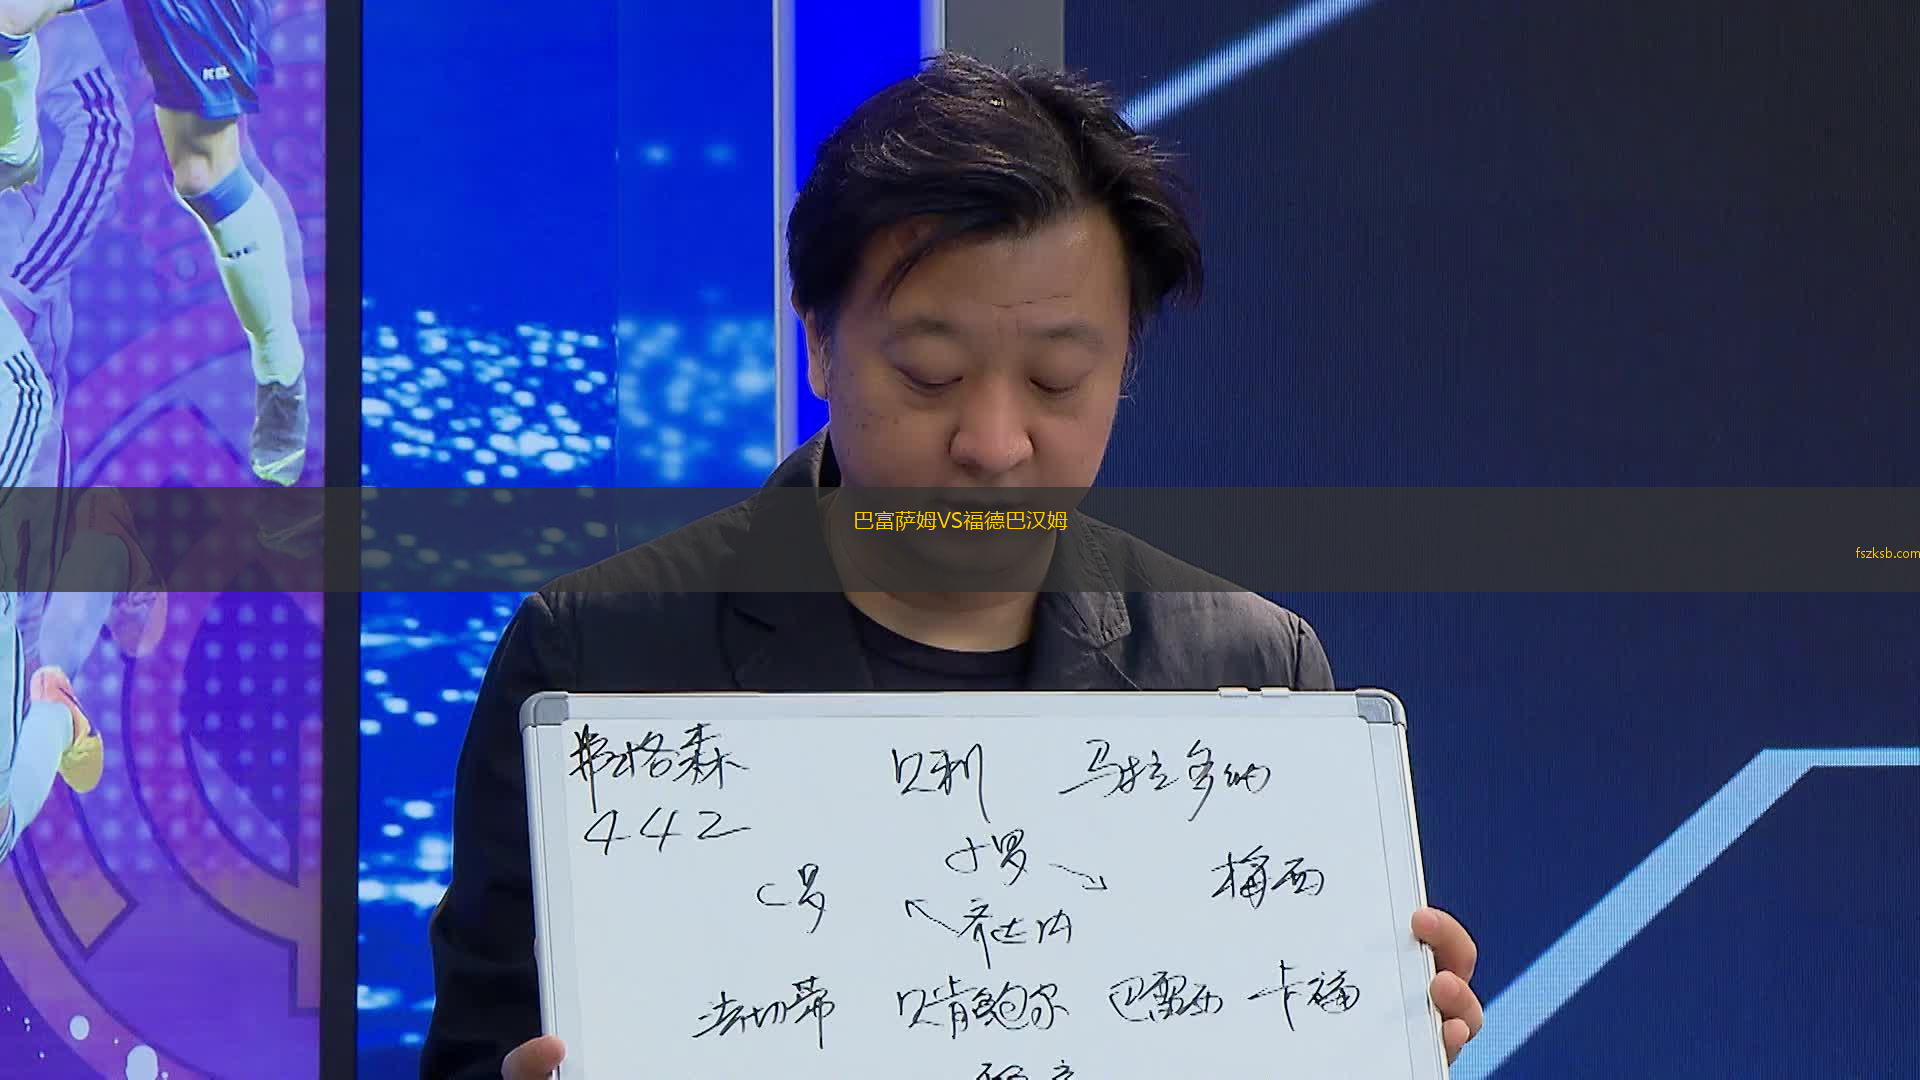 巴富萨姆VS福德巴汉姆
fszksb.com
弗格森 贝利 马拉多纳
442
小罗
C罗 梅西
齐达内
法切蒂 贝肯鲍尔 巴雷西 卡福